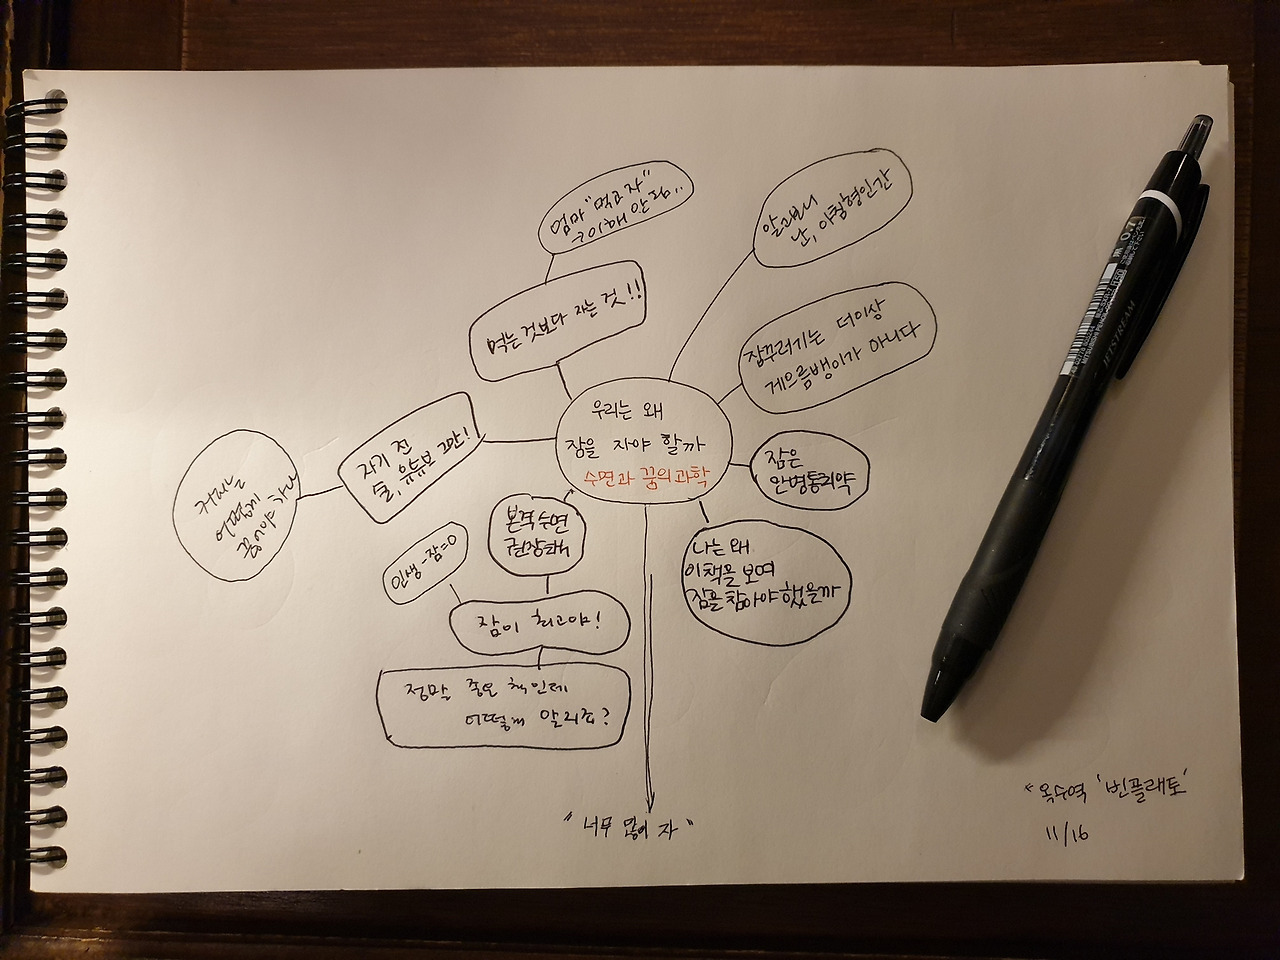 엄마 "먹고 자"
이해 안 됨..
알고보니
난, 아침형인간
먹는 것보다 자는 것!!
잠꾸러기는 더이상
게으름뱅이가 아니다
우리는 왜
잠을 자야 할까
수면과 꿈의 과학
자기 전
술, 유튜브 그만!
커피는
어떻게
끊어야 하나
잠은
만병통치약
본격 수면
권장책
인생-잠=0
나는 왜
이책을 보며
잠을 참아야 했을까
잠이 최고야!
정말 좋은 책인데
어떻게 알리죠?
"너무 많이 자"
옥수역 '빈플래토'
11/16
0.7
JETSTREAM